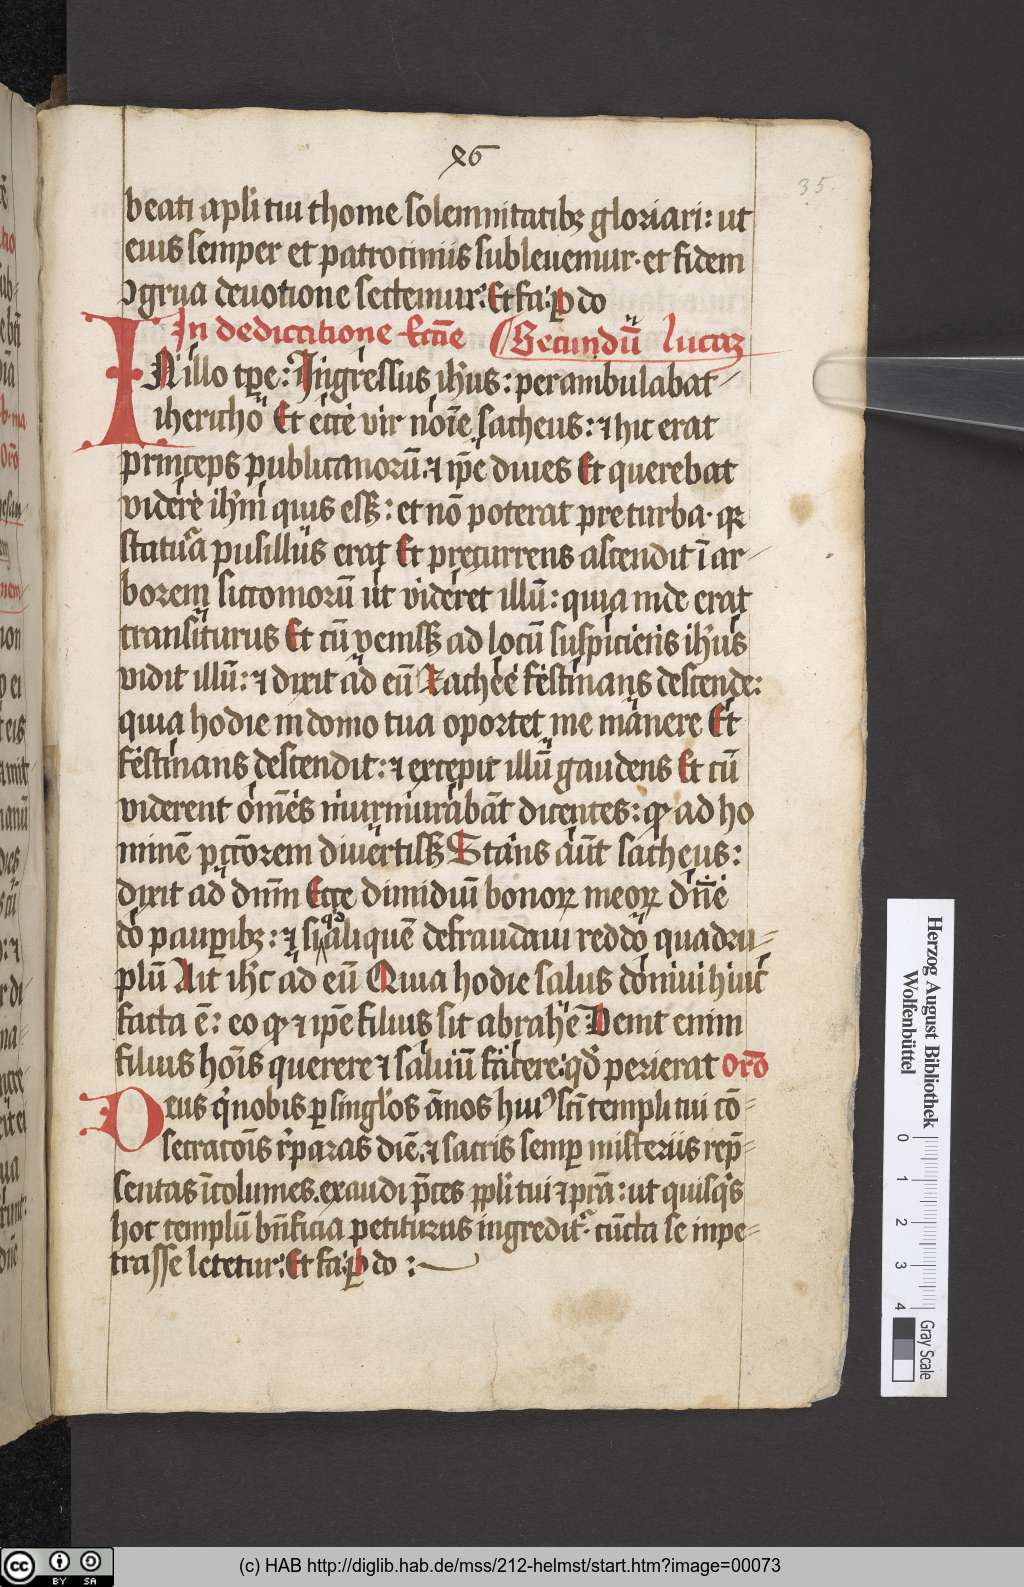 26
35.
beati apłi tui thome solemnitatibꝫ gloriari: ut
eius semper et patrociniis subleuemur· et fidem
ꝯgrua deuotione sectemur: Et fa: ꝑ do
In dedicatione Eccīe Secundū lucaꝫ
IN illo tp̄e: Ingressus ih̄us: perambulabat
ihericho Et ecce vir noīe sacheus: ⁊ hic erat
princeps publicanorū: ⁊ ip̄e diues Et querebat
videre ih̄m quis esꝫ: et nō poterat pre turba· qꝛ
statura pusillus erat Et precurrens ascendit ī ar
borem siccomorū ut videret illū: quia inde erat
transiturus Et cū venisꝫ ad locū suspiciens ih̄us
vidit illū: ⁊ dixit ad eū Zachee festinans descende:
quia hodie in domo tua oportet me manere Et
festinans descendit: ⁊ excepit illū gaudens Et cū
viderent om̄es murmurabāt dicentes: ꝙ ad ho
minē pctōrem diuertisꝫ Stans aūt sacheus:
dixit ad dnm̄ Ecce dimidiū bonoꝝ meoꝝ dn̄e
do pauꝑibꝫ: ⁊ si qd aliquē defraudaui reddo quadru
plū Ait ih̄c ad eū Quia hodie salus domui huic
facta ē: eo ꝙ ⁊ ip̄e filius sit abrahe Venit enim
filius hoīs querere ⁊ saluū facere: qd̄ perierat Orō
Deus q nobis ꝑ singlos ānos huiꝰ sc̄i templi tui cō
secratōis rꝑaras diē: ⁊ sacris semꝑ misteriis rep̄
sentas īcolumes. exaudi p̄ces ppłi tui ⁊ p̄ra: ut quisqs
hoc templū bn̄ficia petiturus ingredit᷑· cūcta se inpe
trasse letetur: Et fa: ꝑ do :
Herzog August Bibliothek
Wolfenbüttel
0 1 2 3 4
Gray Scale
cc BY SA
(c) HAB http://diglib.hab.de/mss/212-helmst/start.htm?image=00073